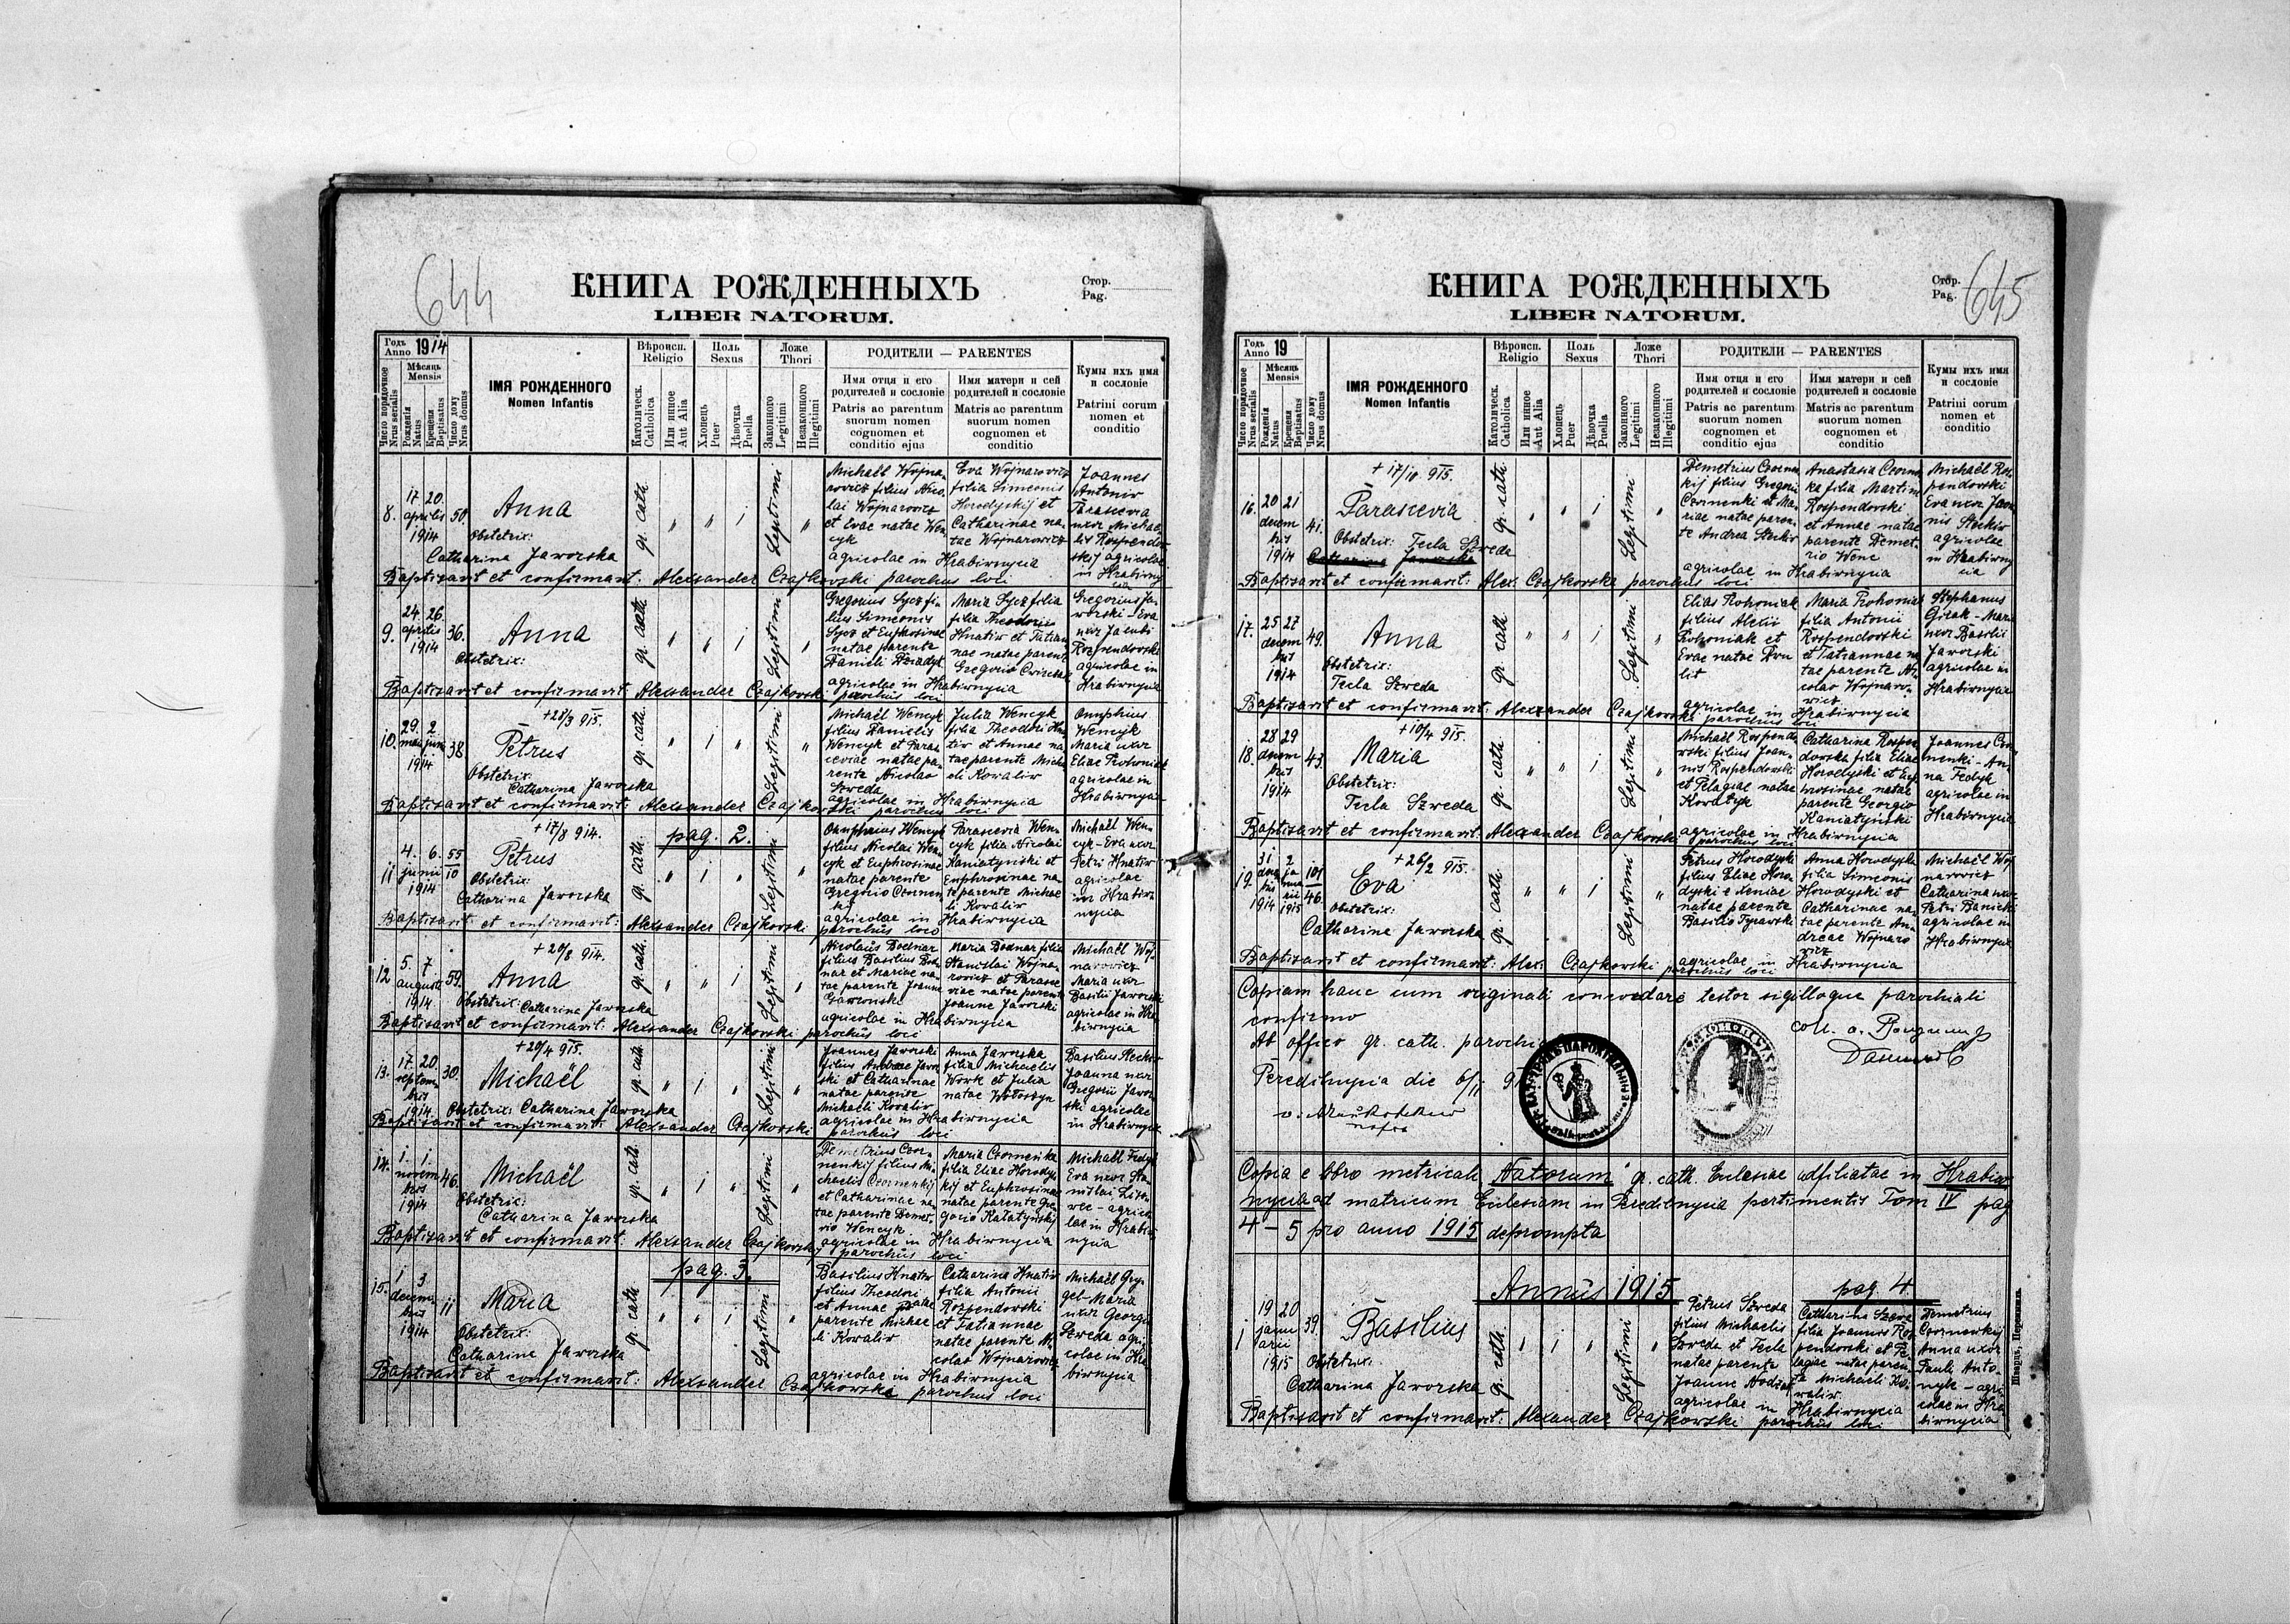 644
КНИГА РОЖДЕННЫХЪ
LIBER NATORUM.
Стор.
Pag.
Годъ
Anno 1914
Мѣсяць
Mensis
Число порядочное
Nrus serialis
Рожденія
Natus
Крещенія
Baptisatus
Число дому
Nrus domus
ІМЯ РОЖДЕННОГО
Nomen Infantis
Вѣроисп.
Religio
Католическ.
Catholica
Или инное
Aut Alia
Поль
Sexus
Хлопець
Puer
Дѣвочка
Puella
Ложе
Thori
Законного
Legitimi
Незаконного
Illegitimi
РОДИТЕЛИ — PARENTES
Имя отця и его
родителей и сословіе
Patris ac parentum
suorum nomen
cognomen et
conditio ejus
Имя матери и сей
родителей и сословіе
Matris ac parentum
suorum nomen
cognomen et
conditio
Кумы ихъ имя
и сословіе
Patrini eorum
nomen et
conditio
8.
17 20.
aprilis
1914
50.
Anna
Obstetrix:
Catharina Jaworska
gr. cath.
Legitimi
Michaël Wojna-
rovicz filius Nico-
lai Wojnarovicz
et Evae natae Wen-
cyk
Eva Wojnarovicz
filia Simeonis
Horodyskij et
Catharinae na-
tae Wojnarowicz
agricolae in Hrabiwnycia
Joannes
Antoniv
Parascevia
uxor Michae-
lis Rospendow-
skij agricolae
in Hrabiwny-
cia
Baptisavit et confirmavit: Alexander Czajkovski parochus loci
9.
24. 26.
aprilis
1914
36.
Anna
Obstetrix:
gr. cath.
Legitimi
Gregorius Sycz fi-
lius Simeonis
Sycz et Euphrosinae
natae parente
Danieli Dziadyk
Maria Sycz filia
filia Theodoris
Hnativ et Tatian-
nae natae parente
Gregorio
agricolae in Hrabiwnycia
Gregorius Ja-
worski Eva
uxor Jacobi
Rospendowski
agricolae in
Hrabiwnycia
Baptisavit et confirmavit: Alexander Czajkovski parochus loci
10.
29. 2
maii junii
1914
38
+28/3 915.
Petrus
Obstetrix:
Catharina Jaworska
gr. cath.
Legitimi
Michaël Wencyk
filius Danielis
Wencyk et Paras-
ceviae natae pa-
rente Nicolao
Szweda
Julia Wencyk
filia Theodori Hna-
tiv et Annae na-
tae parente Micha-
eli Kovaliv
agricolae in Hrabiwnycia
Onuphrius
Wencyk
Maria uxor
Eliae Prohoniak
agricolae in
Hrabiwnycia
Baptisavit et confirmavit: Alexander Czajkowski parochus loci
11
4. 6.
junii
1914
55
10
+17/8 914.
Petrus
Obstetrix:
Catharina Jaworska
gr. cath.
pag. 2.
Legitimi
Onuphrius Wencyk
filius Nicolai Wen-
cyk et Euphrosinae
natae parente
Gregorio Czornen-
kij
Parascevia Wen-
cyk filia Nicolai
Kaniatynski et
Euphrosinae na-
te parente Michae-
li Kovaliv
agricolae in Hrabiwnycia
Michaël Wen-
cyk - Eva uxor
Petri Hnativ
agricolae
in Hrabiw-
nycia
Baptisavit et confirmavit: Alexander Czajkovski parochus loci
12
5. 7
augusti
1914
59.
+20/8 914.
Anna
Obstetrix: Catharina Jaworska
gr. cath.
Legitimi
Nicolaus Bodnar
filius Basilius Bod-
nar et Mariae na-
tae parente Joanne
Gawronski
Maria Bodnar filia
Stanislai Wojna-
rovicz et Parasce-
viae natae parente
Joanne Jaworski
agricolae in Hrabiwnycia
Michaël Woj-
narovicz
Maria uxor
Basilii Jaworski
agricolae in Hra-
biwnycia
Baptisavit et confirmavit: Alexander Czajkovski parochus loci
13.
17. 20.
septem-
bris
1914.
30.
+20/4 915.
Michaël
Obstetrix: Catharina Jaworska
gr. cath.
Legitimi
Joannes Jaworski
filius Andreae Jawor-
ski et Catharinae
natae parente
Michaeli Kovaliv
Anna Jaworska
filia Michaelis
Wowk et Julia
natae Wołoszyn
agricolae in Hrabiwnycia
Basilius
Joanna uxor
Gregorii Jawor-
ski agricolae
in Hrabiwnycia
Baptisavit et confirmavit: Alexander Czajkovski parochus loci
14.
1. 1.
novem-
bris
1914
46.
Michaël
Obstetrix:
Catharina Jaworska
gr. cath.
Legitimi
Demetrius Czor-
nenkij filius Mi-
chaelis Czornenkij
et Catharinae na-
tae parente Demet-
rio Wencyk
Maria Czornenka
filia Eliae Horodys-
kij et Euphrosinae
natae parente Gre-
gorio
agricolae in Hrabiwnycia
Michaël Fedyk
Eva uxor Sta-
nislai
agrico-
lae in Hrabiw-
nycia
Baptisavit et confirmavit: Alexander Czajkovskij parochus loci
15.
1 3
decem-
bris
1914
11
Maria
Obstetrix:
Catharina Jaworska
gr. cath.
pag. 3.
Legitimi
Basilius Hnativ
filius Theodori
et Annae natae
parente Michae-
li Kovaliv
Catharina Hnativ
filia Antonii
Rospendowski
et Tatiannae
natae parente Ni-
colao Wojnarovicz
agricolae in Hrabiwnycia
Michaël Gry-
gel Maria
uxor Georgii
Szweda agri-
colae in Hra-
biwnycia
Baptisavit et confirmavit: Alexander Czajkowska parochus loci
645
КНИГА РОЖДЕННЫХЪ
LIBER NATORUM.
Стор.
Pag.
Годъ
Anno 19
Мѣсяць
Mensis
Число порядочное
Nrus serialis
Рожденія
Natus
Крещенія
Baptisatus
Число дому
Nrus domus
ІМЯ РОЖДЕННОГО
Nomen Infantis
Вѣроисп.
Religio
Католическ.
Catholica
Или инное
Aut Alia
Поль
Sexus
Хлопець
Puer
Дѣвочка
Puella
Ложе
Thori
Законного
Legitimi
Незаконного
Illegitimi
РОДИТЕЛИ — PARENTES
Имя отця и его
родителей и сословіе
Patris ac parentum
suorum nomen
cognomen et
conditio ejus
Имя матери и сей
родителей и сословіе
Matris ac parentum
suorum nomen
cognomen et
conditio
Кумы ихъ имя
и сословіе
Patrini eorum
nomen et
conditio
16.
20 21
decem
bris
1914
41.
+17/10 915.
Parascevia
Obstetrix: Tecla Szweda
Catharina Jaworska
gr. cath.
Legitimi
Demetrius Czornen-
kij filius Gregorii
Czornenki et Ma-
riae natae paren-
te Andrea Steckiv
Anastasia Czorne-
ka filia Martini
Rospendovski
et Annae natae
parente Demet-
rio Wenc
agricolae in Hrabiwnycia
Michaël Ros-
pendovski
Eva uxor Joan-
nis Steckiv
agricolae
in Hrabiwny
cia
Baptisavit et confirmavit: Alex. Czajkovska parochus loci
17.
25 27
decem
bris
1914
49.
Anna
Obstetrix:
Tecla Szweda
gr. cath.
Legitimi
Elias Prohoniak
filius Alexii
Prohoniak et
Evae natae
Maria Prohoniak
filia Antonii
Rospendovski
et Tatiannae na-
tae parente Ni-
colao Wojnaro-
wicz
agricolae in Hrabiwnycia
Stephanus
Maria
uxor Basilii
Jaworski
agricolae in
Hrabiwnycia
Baptisavit et confirmavit: Alexander Czajkovski parochus loci
18.
28 29
decem
bris
1914
43.
+10/4 915.
Maria
Obstetrix:
Tecla Szweda
gr. cath.
Legitimi
Michaël Rospendo-
wski filius Joan-
nis Rospendowski
et Pelagiae natae
Kowalyk
Catharina Rospen-
dovska filia Eliae
Horodyski et Eup-
hrosinae natae
parente Georgio
Kaniatyński
agricolae in Hrabiwnycia
Joannes Czor-
nenki - An-
na Fedyk
agricolae in
Hrabiwnycia
Baptisavit et confirmavit: Alexander Czajkovski parochus loci
19.
31 2
decem ja
bris nua
rii
1914 1915
101
46.
+26/2 915.
Eva
Obstetrix:
Catharina Jaworska
gr. cath.
Legitimi
Petrus Horodyski
filius Eliae Horo-
dyski e Xeniae
natae parente
Basilio
Anna Horodyska
filia Simeonis
Horodyski et
Catharinae na-
tae parente An-
dreae Wojnaro
wicz
agricolae in Hrabiwnycia
Michaël Woj-
narovicz
Catharina uxor
Petri Banicki
agricolae in
Hrabiwnycia
Baptisavit et confirmavit: Alex: Czajkovski parochus loci
Copiam hanc cum originali concordare testor sigilloque parochiali
confirmo
Ab officio gr. cath. parochi
Peredilnycia die 6/11 91
Copia e libro metricali Natorum gr. cath. Eclesiae adfiliatae in Hrabiw-
nycia ad matricam Eclesiam in Peredilnycia pertinentis Tom IV pag
4 – 5 pro anno 1915 deprompta
Annus 1915
pag. 4.
1
19 20
janu
arii
1915
39.
Basilius
Obstetrix:
Catharina Jaworska
gr. cath.
Legitimi
Petrus Szweda
filius Michaelis
Szweda et Tecla
natae parente
Joanne
Catharina Szweda
filia Joannis Ros-
pendorski et Pe-
lagiae natae paren-
te Michaeli Ko-
waliv.
agricolae in Hrabiwnycia
Demetrius
Czornowkij
Anna uxor
Pauli Anto-
nyk – agri-
colae in Hra-
biwnycia
Baptisavit et confirmavit: Alexander Czajkowski parochus loci